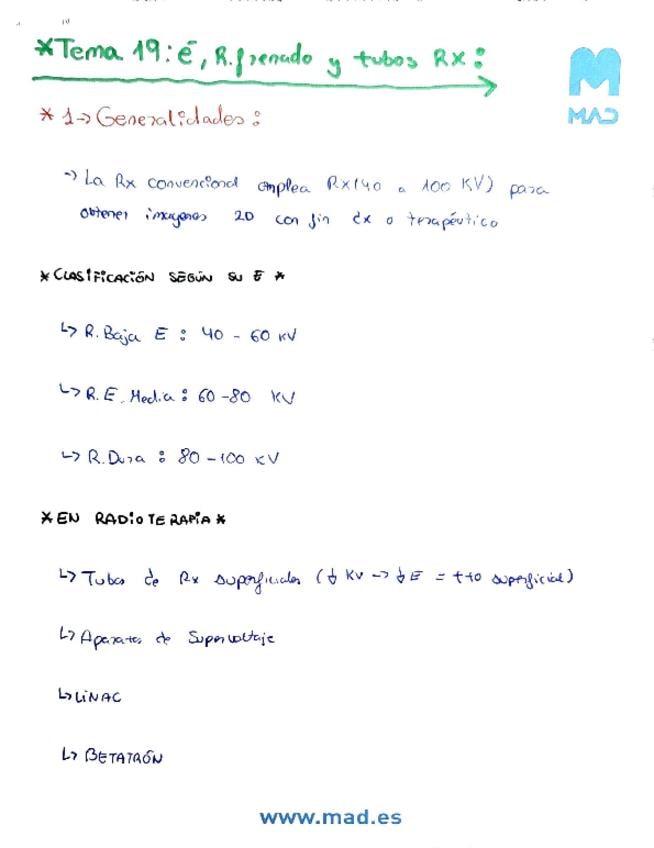 *Tema 19: é, R.frenado y tubos Rx:
MAD
* 1→ Generalidades:
→ La Rx convencional emplea Rx(40 a 100 KV) para
obtener imagenes 2D con fin dx o terapéutico
*CLASIFICACIÓN SEGÚN SU E *
↳ R. Baja E : 40 - 60 KV
↳ R. E. Media : 60-80 KV
↳ R. Dura : 80-100 KV
*EN RADIOTERAPIA*
↳ Tubos de Rx superficiales (↓ KV → ↓ E = tto superficial)
↳ Aparatos de Supervoltaje
↳ LiNAC
↳ BETATRÓN
www.mad.es